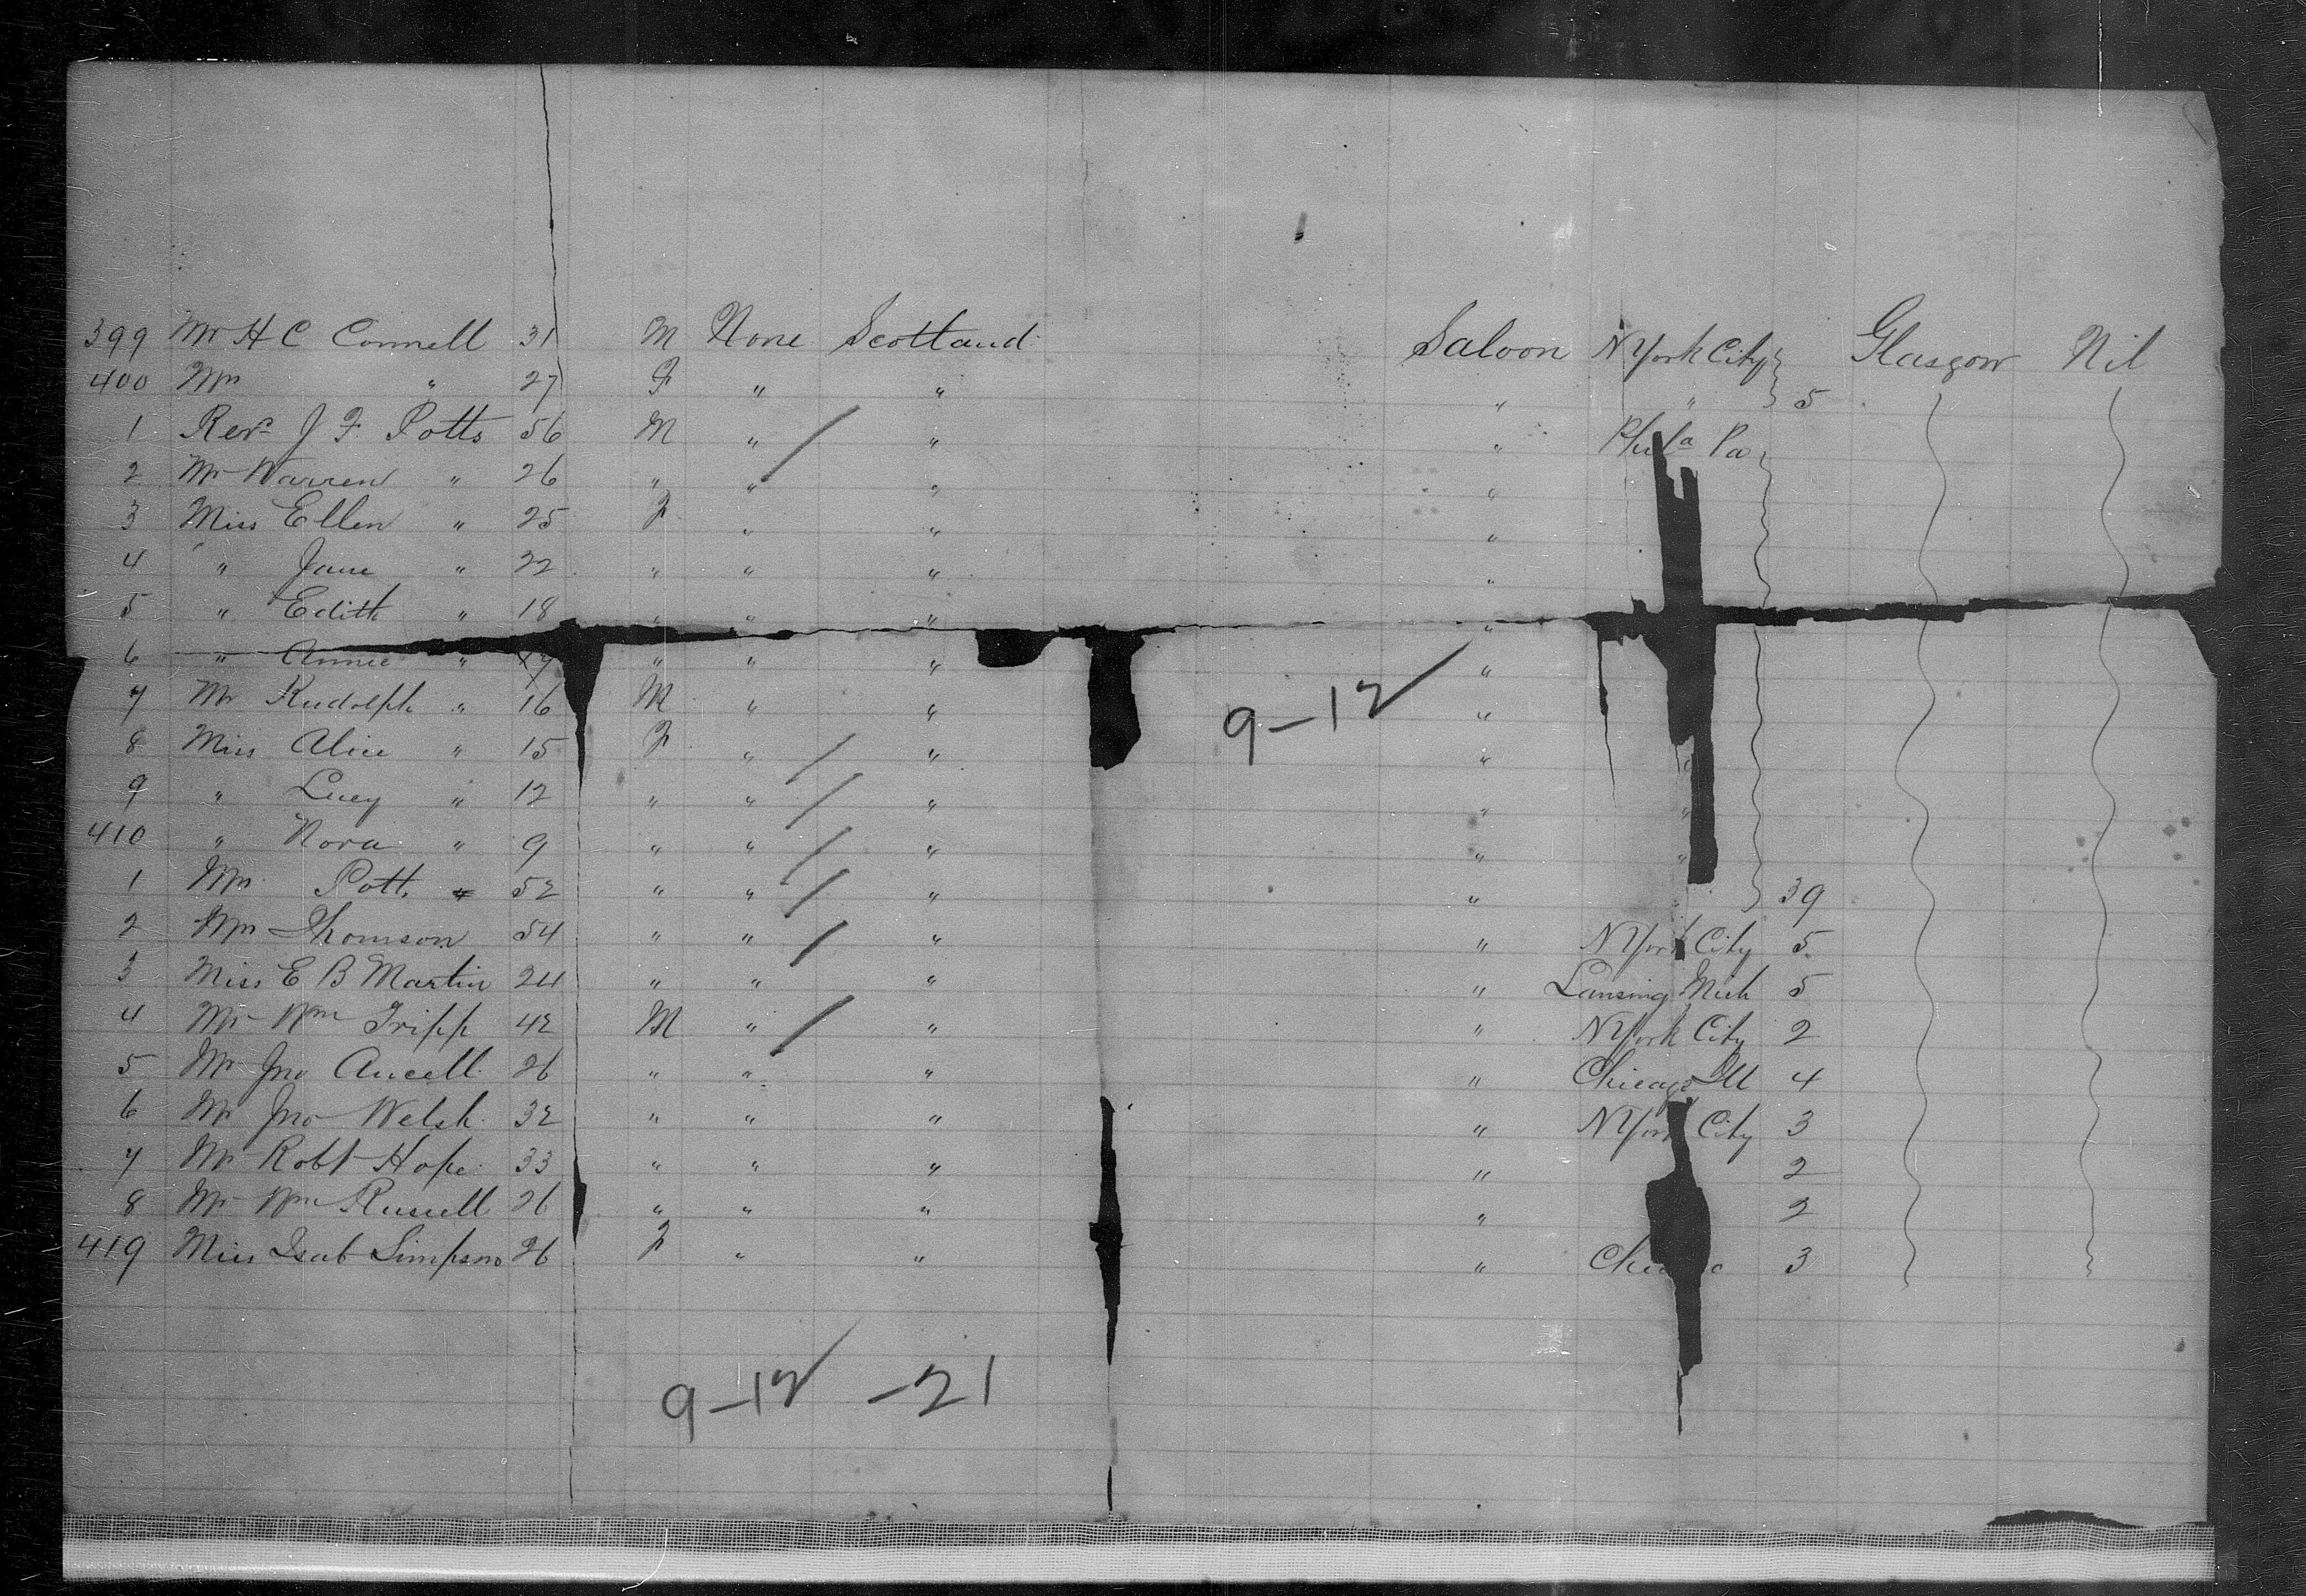 399 Mr H C Connell 31 M None Scotland Saloon N York City Glasgow Nil
400 Mrs " 27 F " " " " 5
1 Revd J F. Potts 56 M " " " Phila Pa
2 Mr Warren " 26 " " " "
3 Miss Ellen " 25 F " " "
4 " Jane " 22 " " " "
5 " Edith " 18 " " " "
6 " Annie " " " " "
7 Mr Rudolph " 16 M " " " 9-12
8 Miss Alice " 15 F " " "
9 " Lucy " 12 " " " " "
410 " Nora " 9 " " " " "
1 Mrs Potts " 52 " " " " " 39
2 Mrs Thomson 54 " " " " N York City 5
3 Miss E B Martin 24 " " " " Lansing Mich 5
4 Mr Wm Tripp 42 M " " " N York City 2
5 Mr Jno Ancell 26 " " " " Chicago Ill 4
6 Mr Jno Welsh 32 " " " " N York City 3
7 Mr Robt Hope 33 " " " " 2
8 Mr Wm Russell 26 " " " " 2
419 Miss Isab Simpson 26 F " " " 3
9-12 -21